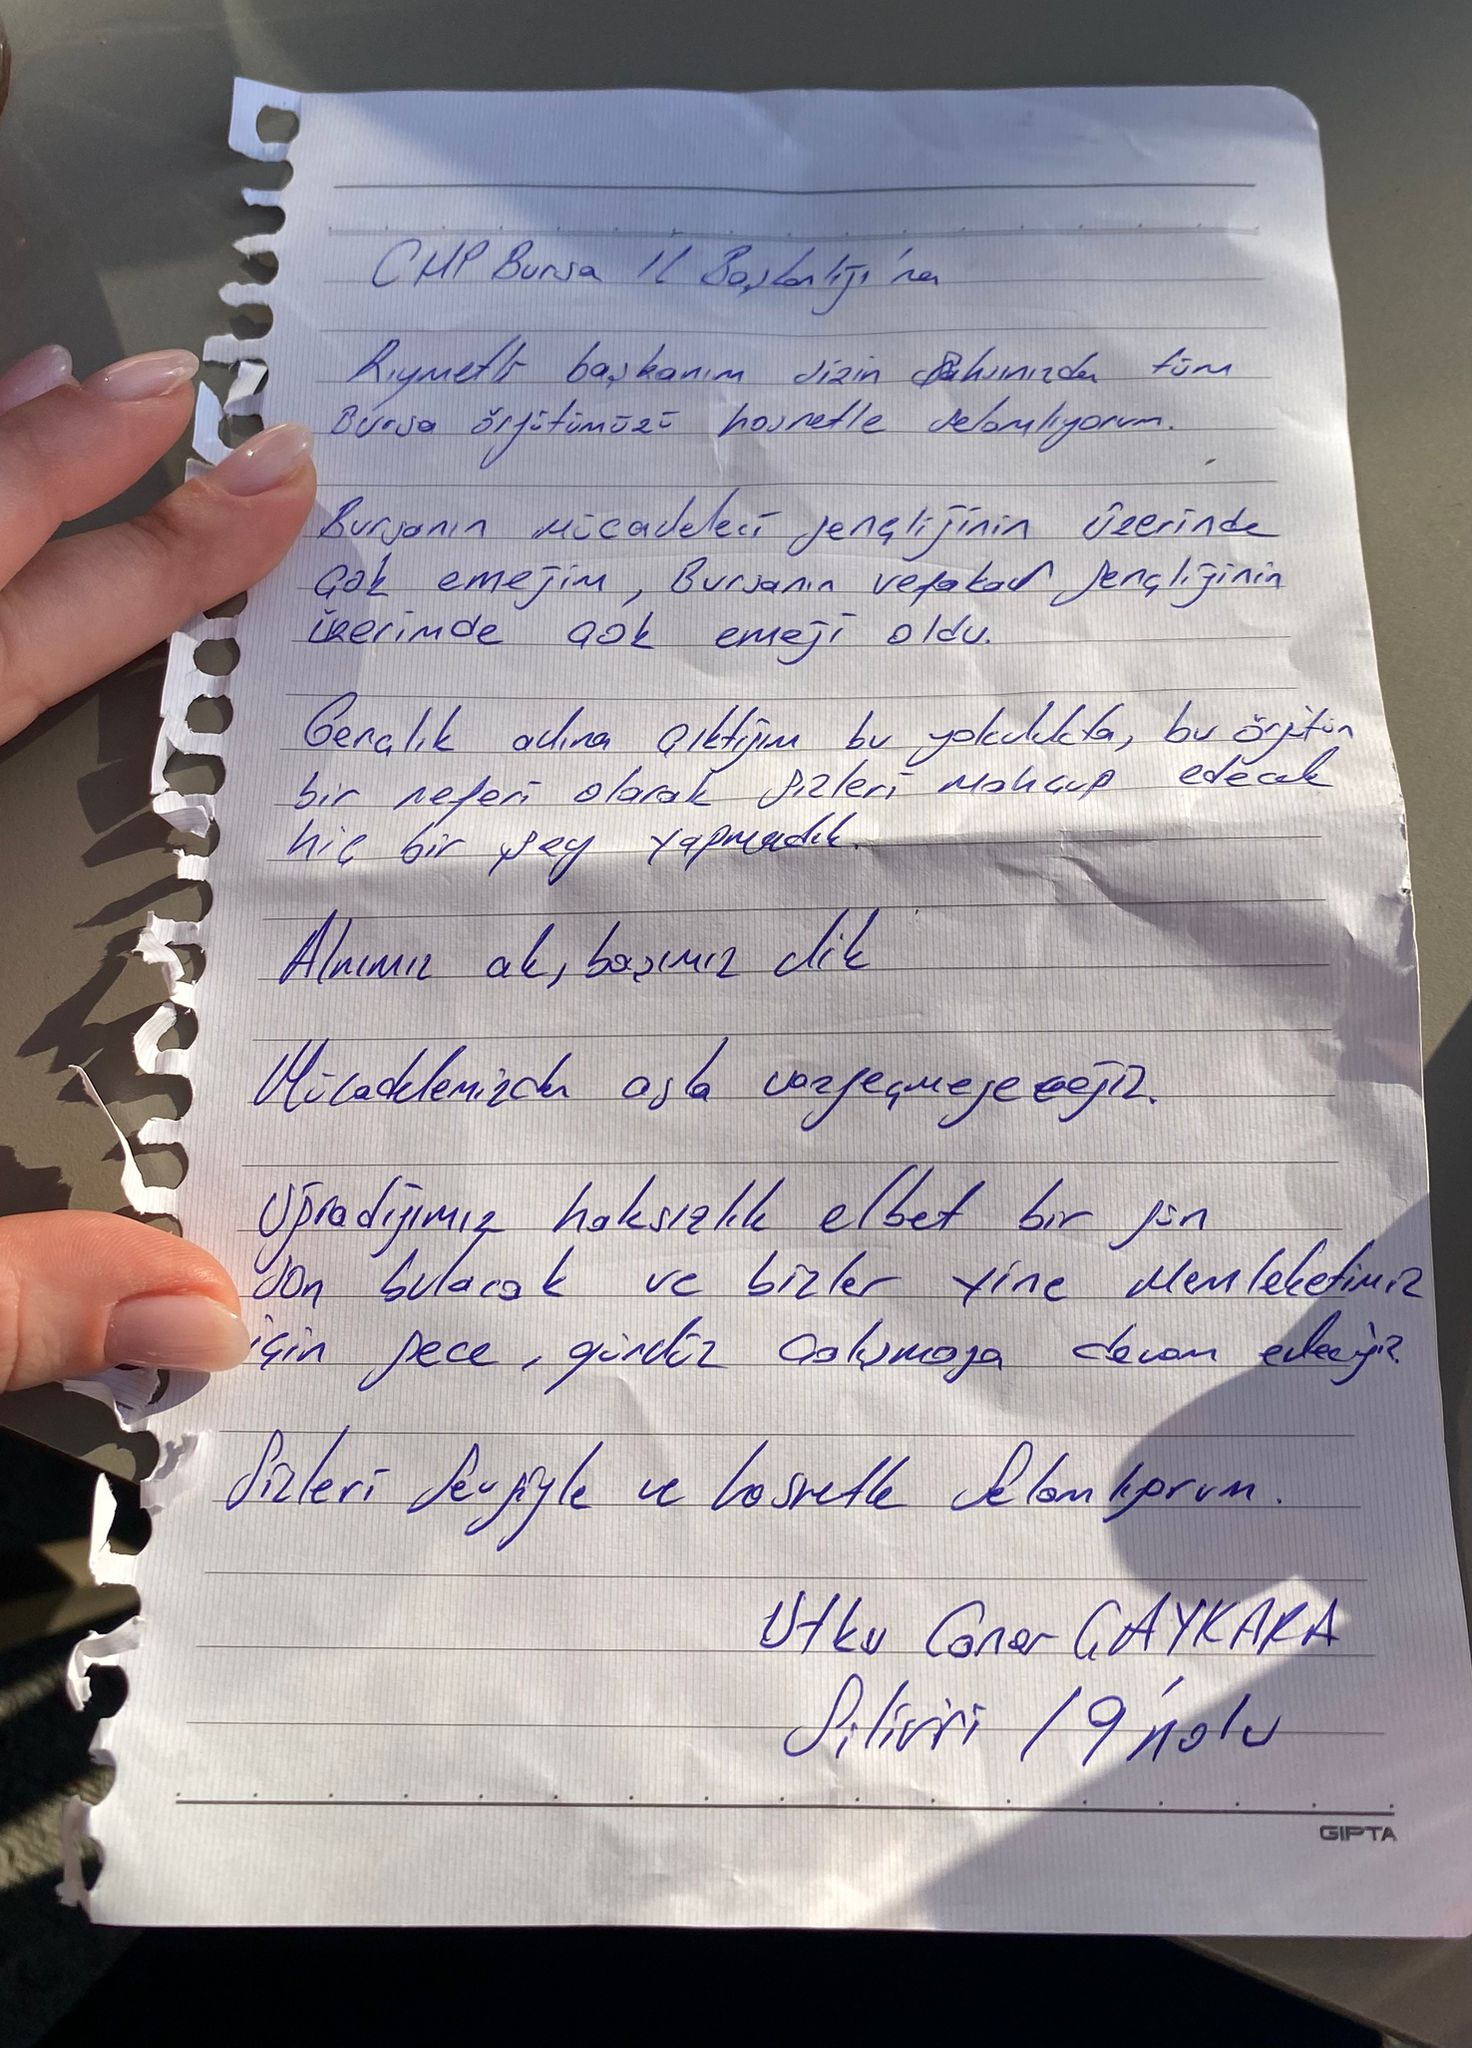 CHP Bursa İl Başkanlığı'na
Kıymetli başkanım sizin şahsınızda tüm
Bursa örgütümüzü hasretle selamlıyorum.
Bursanın mücadeleci gençliğinin üzerinde
çok emeğim, Bursanın vefakar gençliğinin
üzerimde çok emeği oldu.
Gençlik adına çıktığım bu yolculukta, bu örgütün
bir neferi olarak sizleri mahcup edecek
hiç bir şey yapmadık.
Alnımız ak, başımız dik
Mücadelemizden asla vazgeçmeyeceğiz.
Uğradığımız haksızlık elbet bir gün
son bulacak ve bizler yine memleketimiz
için gece, gündüz çalışmaya devam edeceğiz.
Sizleri sevgiyle ve hasretle selamlıyorum.
Utku Caner ÇAYKARA
Silivri 19 nolu
GIPTA